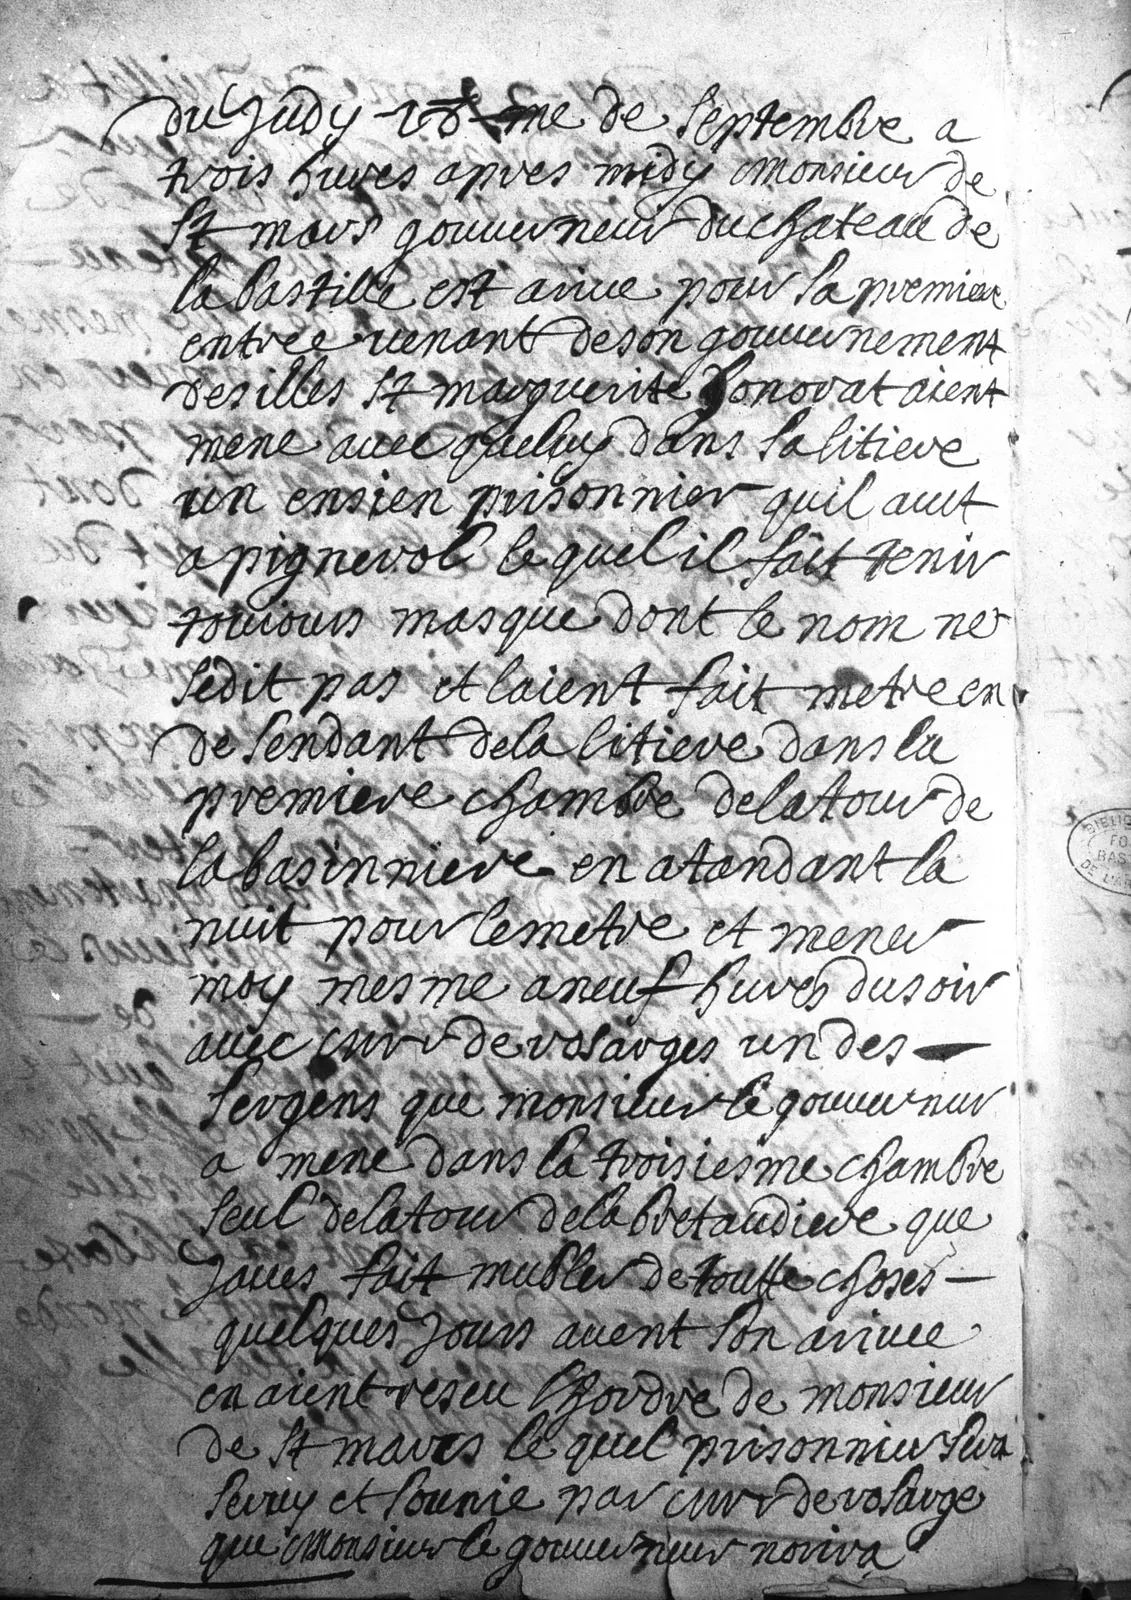 du Judy 18me de septembre a
trois hures apres midy monsieur de
st mars gouuerneur du chateau de
la bastille est ariue pour sa premiere
entree uenant de son gouuernement
des illes st marguerite honorat aient
mene auec queluy dans sa litiere
un ensien prisonnier quil auet
a pignerol le quel il fait tenir
touiours masque dont le nom ne
se dit pas et laient fait metre en
de sendant de la litiere dans la
premiere chambre de la tour de
la basinniere en atandant la
nuit pour le metre et mener
moy mesme a neuf hures du soir
auec de rosarges un des
sergens que monsieur le gouuerneur
a mene dans la troisiesme chambre
seul de la tour de la bretaudiere que
Jaues fait mubler de toutte choses
quelques Jours auent son ariuee
en aient reseu lhordre de monsieur
de st mars le quel prisonnier sera
seruy et sounie par de rosarge
que monsieur le gouuerneur norira
BIBLIO
FO
BAS
DE L'AR